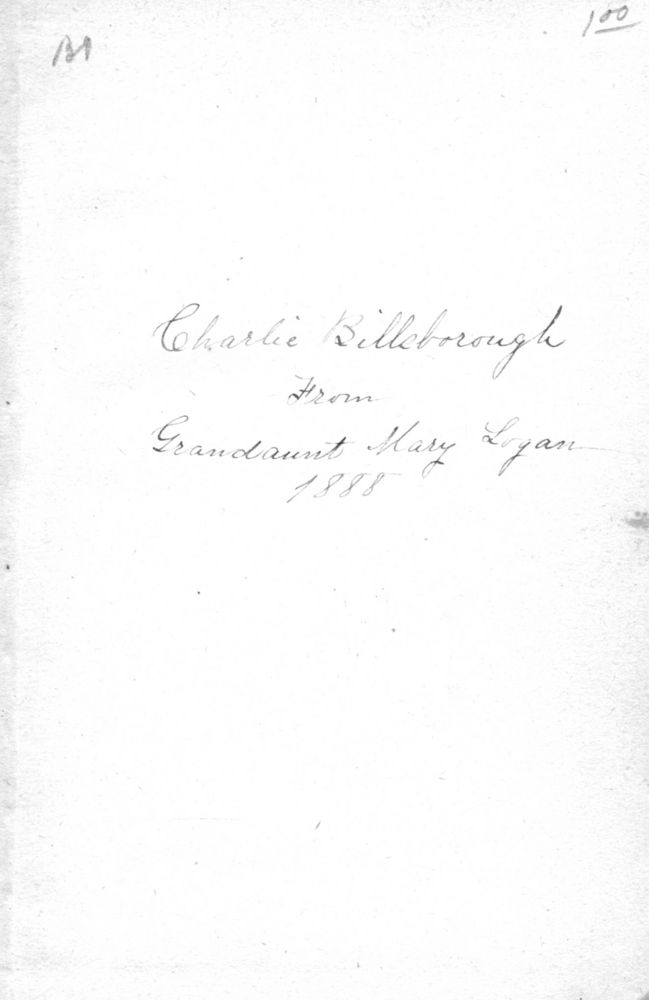 1 00
Charlie Billsborough
From
Grandaunt Mary Logan
1888